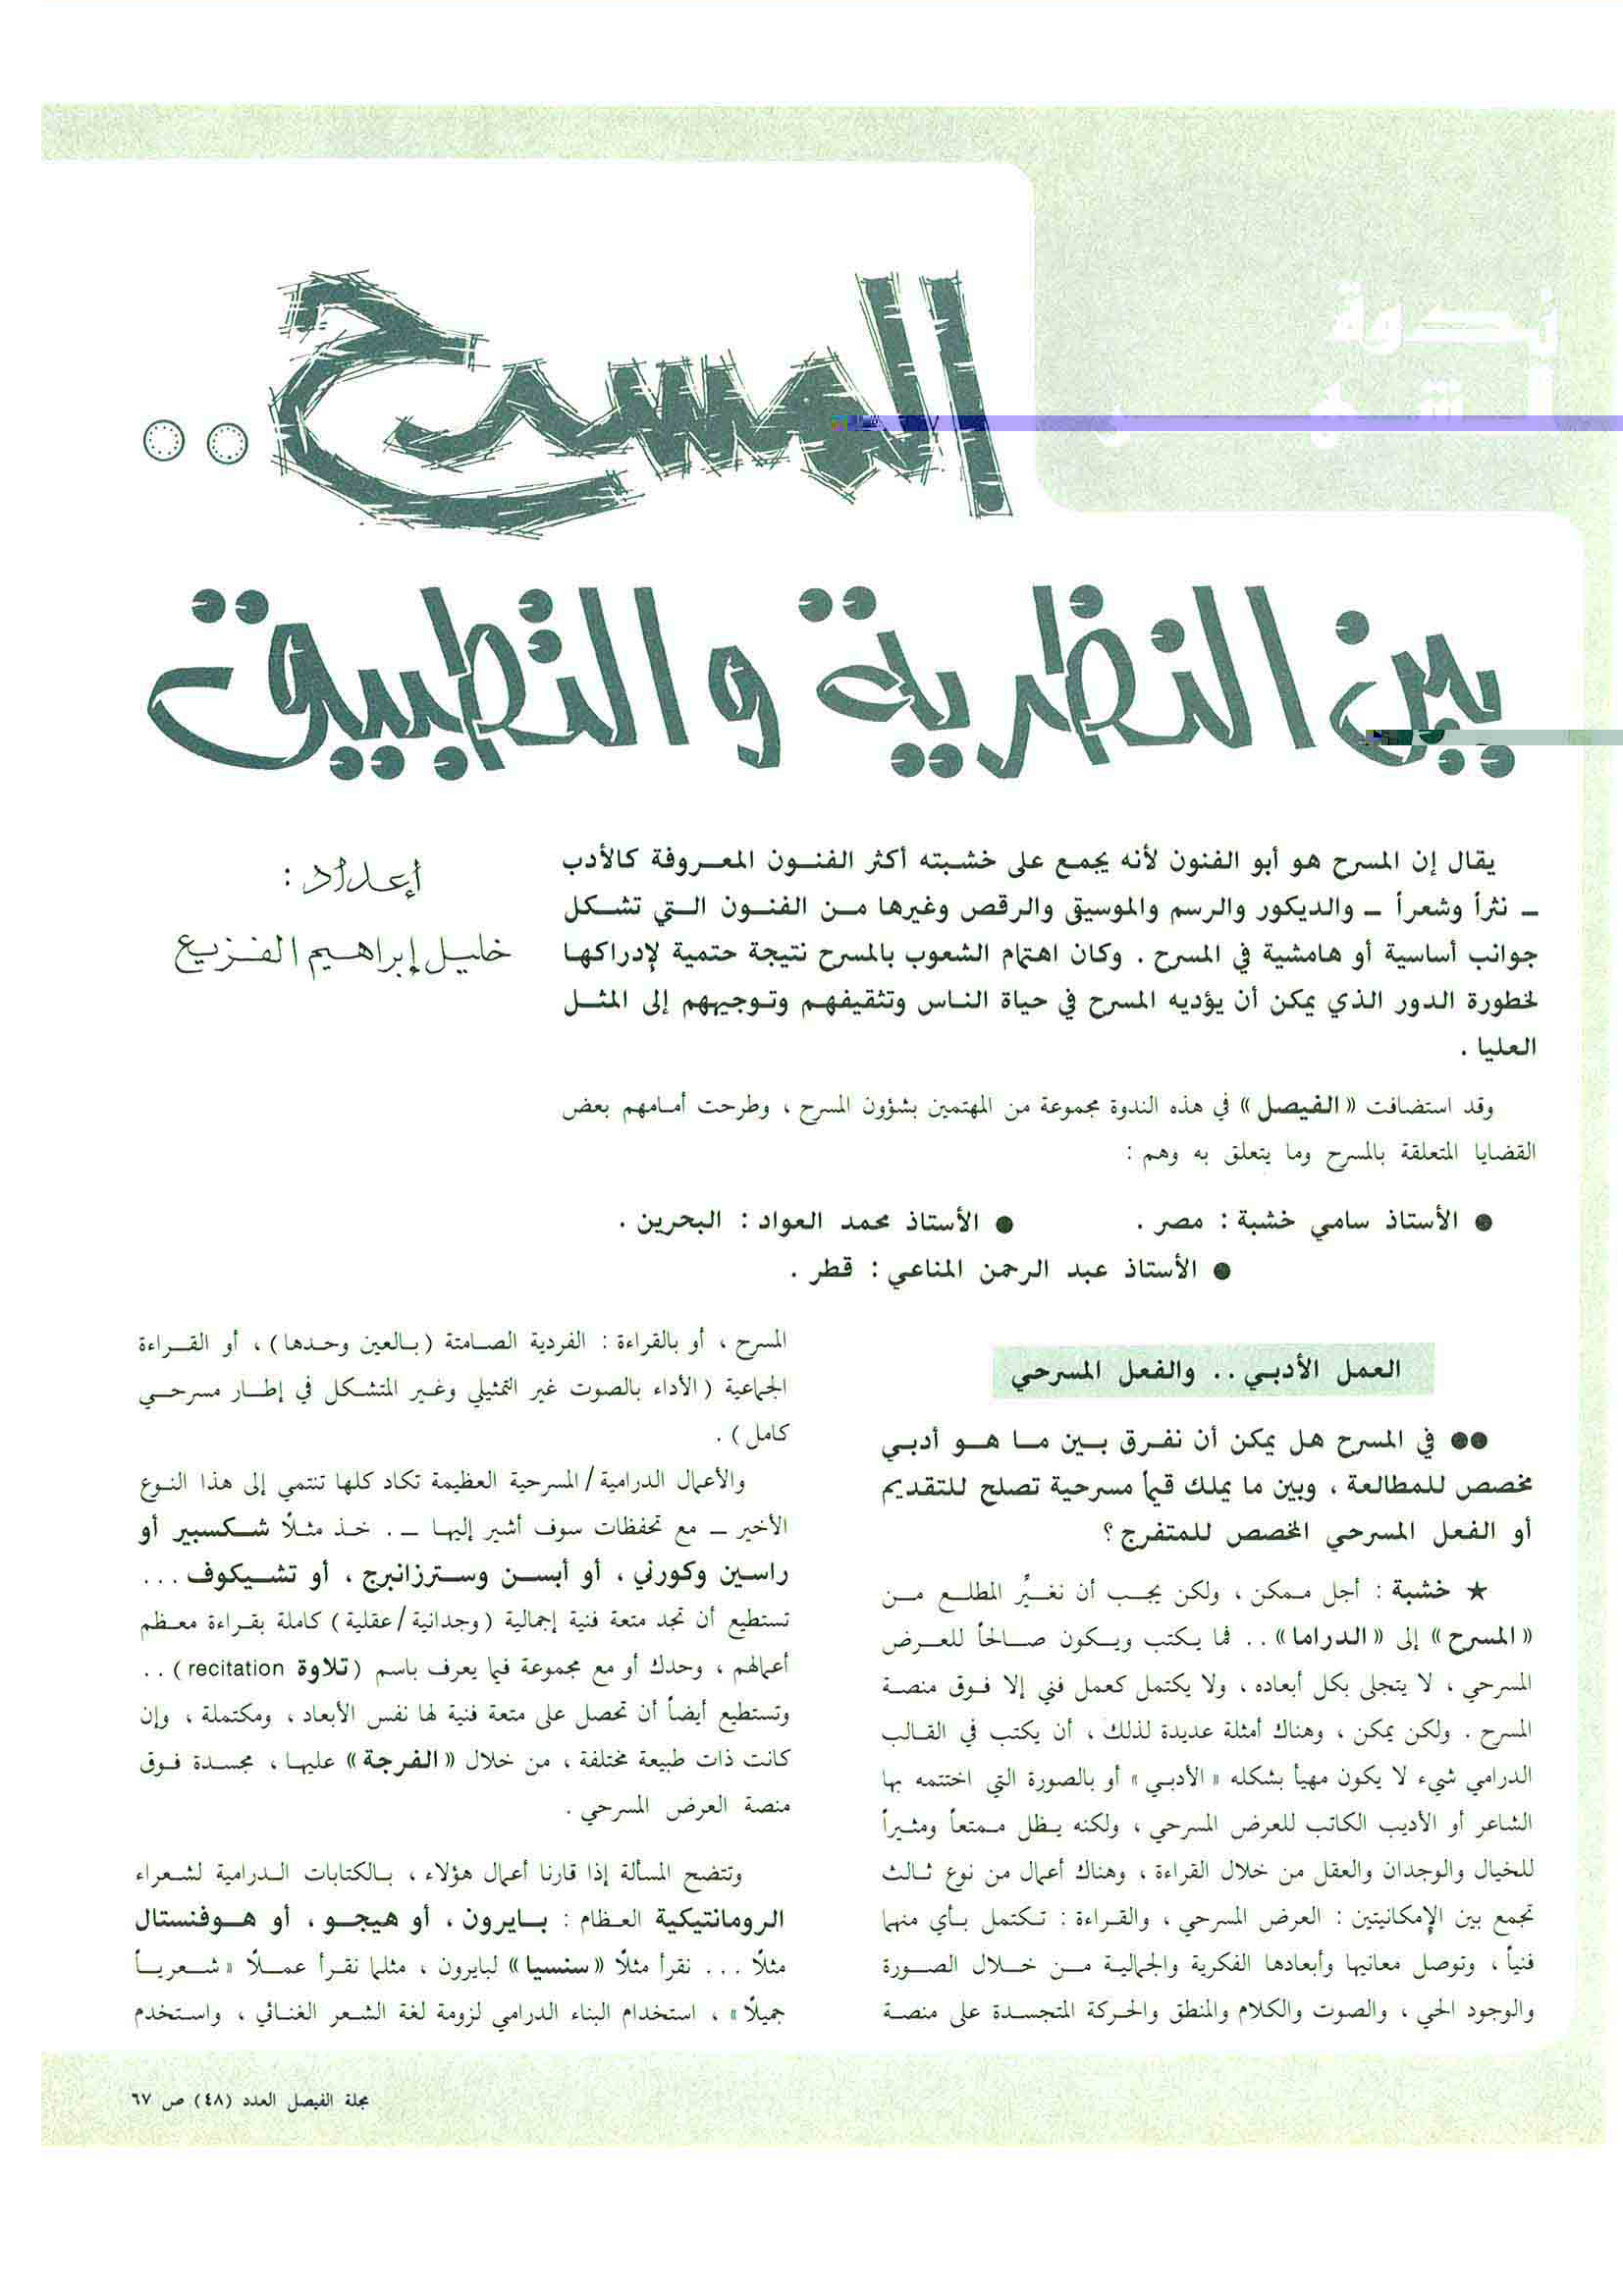 ندوة
الشهر
المسرح ..
بين النظرية والتطبيق
إعداد :
خليل إبراهيم الفزيع
يقال إن المسرح هو أبو الفنون لأنه يجمع على خشبته أكثر الفنون المعروفة كالأدب
– نثراً وشعراً – والديكور والرسم والموسيقى والرقص وغيرها من الفنون التي تشكل
جوانب أساسية أو هامشية في المسرح . وكان اهتمام الشعوب بالمسرح نتيجة حتمية لإدراكها
لخطورة الدور الذي يمكن أن يؤديه المسرح في حياة الناس وتثقيفهم وتوجيههم إلى المثل
العليا .
وقد استضافت «الفيصل» في هذه الندوة مجموعة من المهتمين بشؤون المسرح ، وطرحت أمامهم بعض
القضايا المتعلقة بالمسرح وما يتعلق به وهم :
● الأستاذ سامي خشبة : مصر .
● الأستاذ محمد العواد : البحرين .
● الأستاذ عبد الرحمن المناعي : قطر .
العمل الأدبي .. والفعل المسرحي
●● في المسرح هل يمكن أن نفرق بين ما هو أدبي
مخصص للمطالعة ، وبين ما يملك قيماً مسرحية تصلح للتقديم
أو الفعل المسرحي المخصص للمتفرج ؟
★ خشبة : أجل ممكن ، ولكن يجب أن نغيِّر المطلع من
«المسرح» إلى «الدراما» .. فما يكتب ويكون صالحاً للعرض
المسرحي ، لا يتجلى بكل أبعاده ، ولا يكتمل كعمل فني إلا فوق منصة
المسرح . ولكن يمكن ، وهناك أمثلة عديدة لذلك ، أن يكتب في القالب
الدرامي شيء لا يكون مهيأ بشكله «الأدبي» أو بالصورة التي اختتمه بها
الشاعر أو الأديب الكاتب للعرض المسرحي ، ولكنه يظل ممتعاً ومثيراً
للخيال والوجدان والعقل من خلال القراءة ، وهناك أعمال من نوع ثالث
تجمع بين الإمكانيتين : العرض المسرحي ، والقراءة : تكتمل بأي منهما
فنياً ، وتوصل معانيها وأبعادها الفكرية والجمالية من خلال الصورة
والوجود الحي ، والصوت والكلام والمنطق والحركة المتجسدة على منصة
المسرح ، أو بالقراءة : الفردية الصامتة (بالعين وحدها) ، أو القراءة
الجماعية (الأداء بالصوت غير التمثيلي وغير المتشكل في إطار مسرحي
كامل) .
والأعمال الدرامية/المسرحية العظيمة تكاد كلها تنتمي إلى هذا النوع
الأخير – مع تحفظات سوف أشير إليها – . خذ مثلاً شكسبير أو
راسين وكورني ، أو أبسن وسترزانبرج ، أو تشيكوف ...
تستطيع أن تجد متعة فنية إجمالية (وجدانية/عقلية) كاملة بقراءة معظم
أعمالهم ، وحدك أو مع مجموعة فيما يعرف باسم (تلاوة recitation) ..
وتستطيع أيضاً أن تحصل على متعة فنية لها نفس الأبعاد ، ومكتملة ، وإن
كانت ذات طبيعة مختلفة ، من خلال «الفرجة» عليها ، مجسدة فوق
منصة العرض المسرحي .
وتتضح المسألة إذا قارنا أعمال هؤلاء ، بالكتابات الدرامية لشعراء
الرومانتيكية العظام : بايرون ، أو هيجو ، أو هوفنستال
مثلاً ... نقرأ مثلاً «سنسيا» لبايرون ، مثلما نقرأ عملاً «شعرياً
جميلاً» ، استخدام البناء الدرامي لزومة لغة الشعر الغنائي ، واستخدم
مجلة الفيصل العدد (٤٨) ص ٦٧